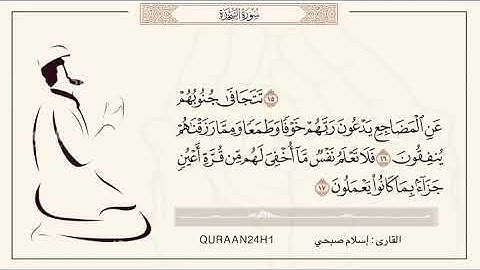 سُورَةُ السَّجْدَةِ
١٥ تَتَجَافَىٰ جُنُوبُهُمْ
عَنِ ٱلْمَضَاجِعِ يَدْعُونَ رَبَّهُمْ خَوْفًا وَطَمَعًا وَمِمَّا رَزَقْنَٰهُمْ
يُنفِقُونَ ١٦ فَلَا تَعْلَمُ نَفْسٌ مَّآ أُخْفِىَ لَهُم مِّن قُرَّةِ أَعْيُنٍ
جَزَآءًۢ بِمَا كَانُوا۟ يَعْمَلُونَ ١٧
القارئ : إسلام صبحي
QURAAN24H1